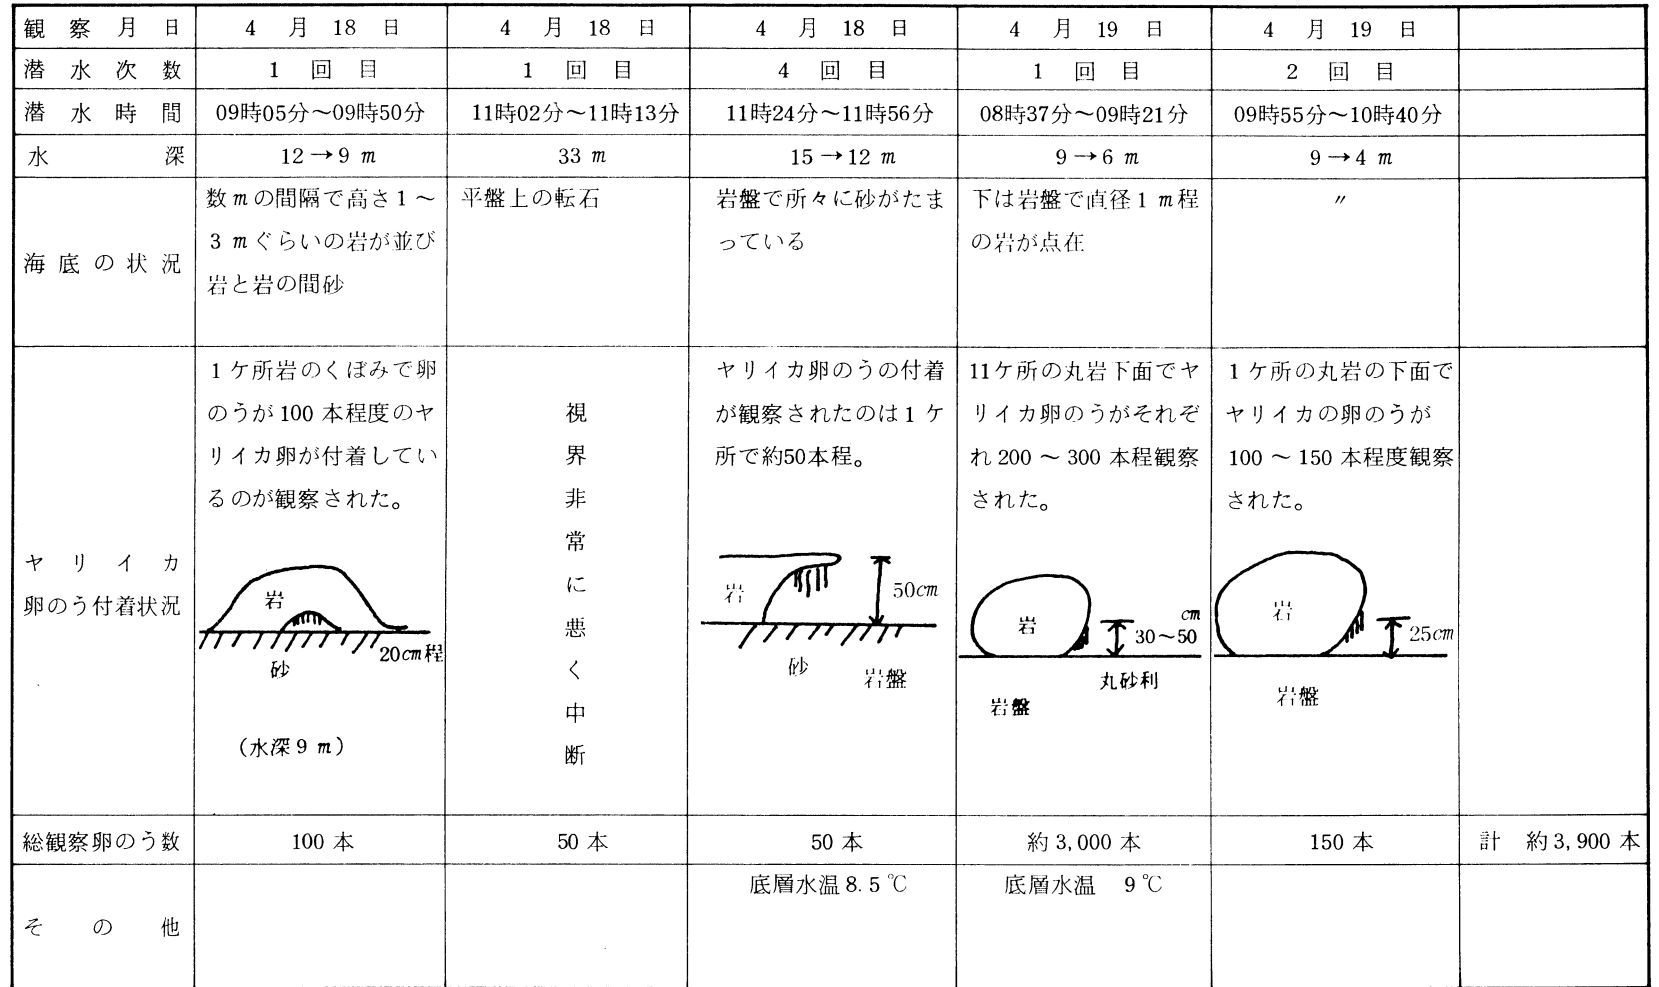 観察月日 4月18日 4月18日 4月18日 4月19日 4月19日
潜水次数 1回目 1回目 4回目 1回目 2回目
潜水時間 09時05分～09時50分 11時02分～11時13分 11時24分～11時56分 08時37分～09時21分 09時55分～10時40分
水深 12→9 m 33 m 15→12 m 9→6 m 9→4 m
海底の状況
数mの間隔で高さ1～
3mぐらいの岩が並び
岩と岩の間砂
平盤上の転石
岩盤で所々に砂がたま
っている
下は岩盤で直径1m程
の岩が点在
〃
ヤリイカ
卵のう付着状況
1ケ所岩のくぼみで卵
のうが100本程度のヤ
リイカ卵が付着してい
るのが観察された。
岩
20cm程
砂
（水深9m）
視界非常に悪く中断
ヤリイカ卵のうの付着
が観察されたのは1ケ
所で約50本程。
岩
50cm
砂 岩盤
11ケ所の丸岩下面でヤ
リイカ卵のうがそれぞ
れ200～300本程観察
された。
岩
cm
30～50
丸砂利
岩盤
1ケ所の丸岩の下面で
ヤリイカの卵のうが
100～150本程度観察
された。
岩
25cm
岩盤
総観察卵のう数 100本 50本 50本 約3,000本 150本 計 約3,900本
その他 底層水温8.5℃ 底層水温 9℃